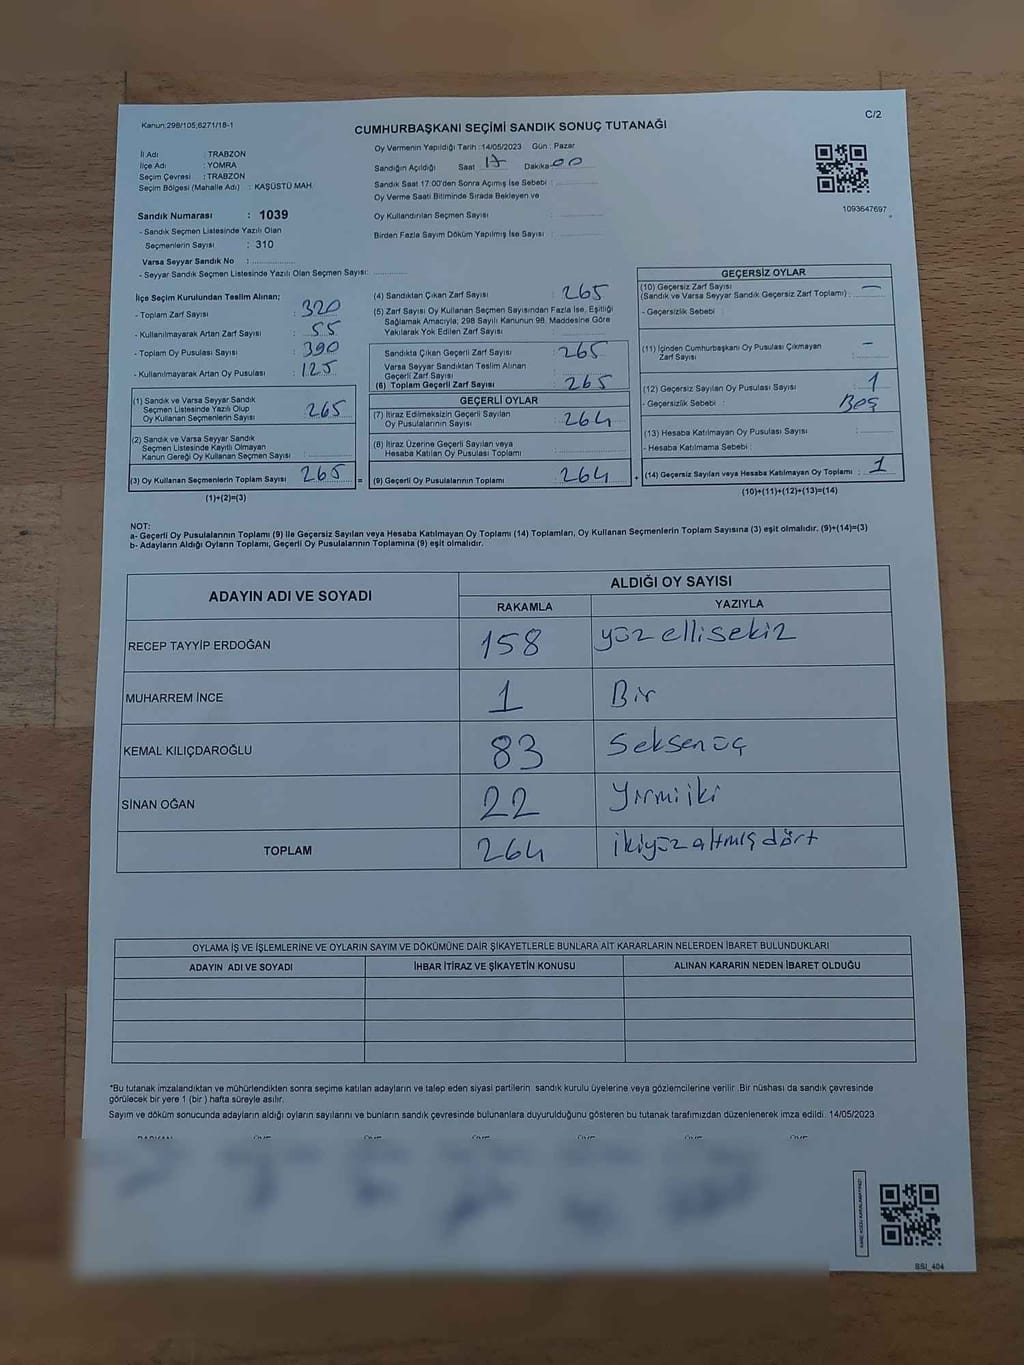 Kanun:298/105;6271/18-1
C/2
CUMHURBAŞKANI SEÇİMİ SANDIK SONUÇ TUTANAĞI
İl Adı : TRABZON
İlçe Adı : YOMRA
Seçim Çevresi : TRABZON
Seçim Bölgesi (Mahalle Adı) : KAŞÜSTÜ MAH
Sandık Numarası : 1039
- Sandık Seçmen Listesinde Yazılı Olan
Seçmenlerin Sayısı : 310
Varsa Seyyar Sandık No :
- Seyyar Sandık Seçmen Listesinde Yazılı Olan Seçmen Sayısı:
Oy Vermenin Yapıldığı Tarih :14/05/2023 Gün : Pazar
Sandığın Açıldığı Saat : 17 Dakika 00
Sandık Saat 17:00'den Sonra Açımış İse Sebebi :
Oy Verme Saati Bitiminde Sırada Bekleyen ve
Oy Kullandırılan Seçmen Sayısı :
Birden Fazla Sayım Döküm Yapılmış İse Sayısı :
1093647697
İlçe Seçim Kurulundan Teslim Alınan;
- Toplam Zarf Sayısı : 320
- Kullanılmayarak Artan Zarf Sayısı : 55
- Toplam Oy Pusulası Sayısı : 390
- Kullanılmayarak Artan Oy Pusulası : 125
(1) Sandık ve Varsa Seyyar Sandık
Seçmen Listesinde Yazılı Olup
Oy Kullanan Seçmenlerin Sayısı : 265
(2) Sandık ve Varsa Seyyar Sandık
Seçmen Listesinde Kayıtlı Olmayan
Kanun Gereği Oy Kullanan Seçmen Sayısı :
(3) Oy Kullanan Seçmenlerin Toplam Sayısı : 265
(1)+(2)=(3)
(4) Sandıktan Çıkan Zarf Sayısı : 265
(5) Zarf Sayısı Oy Kullanan Seçmen Sayısından Fazla İse, Eşitliği
Sağlamak Amacıyla; 298 Sayılı Kanunun 98. Maddesine Göre
Yakılarak Yok Edilen Zarf Sayısı :
Sandıkta Çıkan Geçerli Zarf Sayısı : 265
Varsa Seyyar Sandıktan Teslim Alınan
Geçerli Zarf Sayısı :
(6) Toplam Geçerli Zarf Sayısı : 265
GEÇERLİ OYLAR
(7) İtiraz Edilmeksizin Geçerli Sayılan
Oy Pusulasının Sayısı : 264
(8) İtiraz Üzerine Geçerli Sayılan veya
Hesaba Katılan Oy Pusulası Toplamı :
= (9) Geçerli Oy Pusulalarının Toplamı : 264 +
GEÇERSİZ OYLAR
(10) Geçersiz Zarf Sayısı
(Sandık ve Varsa Seyyar Sandık Geçersiz Zarf Toplamı) : —
- Geçersizlik Sebebi :
(11) İçinden Cumhurbaşkanı Oy Pusulası Çıkmayan
Zarf Sayısı : -
(12) Geçersiz Sayılan Oy Pusulası Sayısı : 1
- Geçersizlik Sebebi : Boş
(13) Hesaba Katılmayan Oy Pusulası Sayısı :
- Hesaba Katılmama Sebebi :
(14) Geçersiz Sayılan veya Hesaba Katılmayan Oy Toplamı : 1
(10)+(11)+(12)+(13)=(14)
NOT:
a- Geçerli Oy Pusulalarının Toplamı (9) ile Geçersiz Sayılan veya Hesaba Katılmayan Oy Toplamı (14) Toplamları, Oy Kullanan Seçmenlerin Toplam Sayısına (3) eşit olmalıdır. (9)+(14)=(3)
b- Adayların Aldığı Oyların Toplamı, Geçerli Oy Pusulalarının Toplamına (9) eşit olmalıdır.
ADAYIN ADI VE SOYADI
ALDIĞI OY SAYISI
RAKAMLA YAZIYLA
RECEP TAYYİP ERDOĞAN 158 yüz ellisekiz
MUHARREM İNCE 1 Bir
KEMAL KILIÇDAROĞLU 83 Seksenüç
SİNAN OĞAN 22 Yirmiiki
TOPLAM 264 ikiyüzaltmışdört
OYLAMA İŞ VE İŞLEMLERİNE VE OYLARIN SAYIM VE DÖKÜMÜNE DAİR ŞİKAYETLERLE BUNLARA AİT KARARLARIN NELERDEN İBARET BULUNDUKLARI
ADAYIN ADI VE SOYADI İHBAR İTİRAZ VE ŞİKAYETİN KONUSU ALINAN KARARIN NEDEN İBARET OLDUĞU
*Bu tutanak imzalandıktan ve mühürlendikten sonra seçime katılan adayların ve talep eden siyasi partilerin sandık kurulu üyelerine veya gözlemcilerine verilir. Bir nüshası da sandık çevresinde
görülecek bir yere 1 (bir) hafta süreyle asılır.
Sayım ve döküm sonucunda adayların aldığı oyların sayılarını ve bunların sandık çevresinde bulunanlara duyurulduğunu gösteren bu tutanak tarafımızdan düzenlenerek imza edildi. 14/05/2023
BAŞKAN ÜYE ÜYE ÜYE ÜYE ÜYE ÜYE
BSI_404